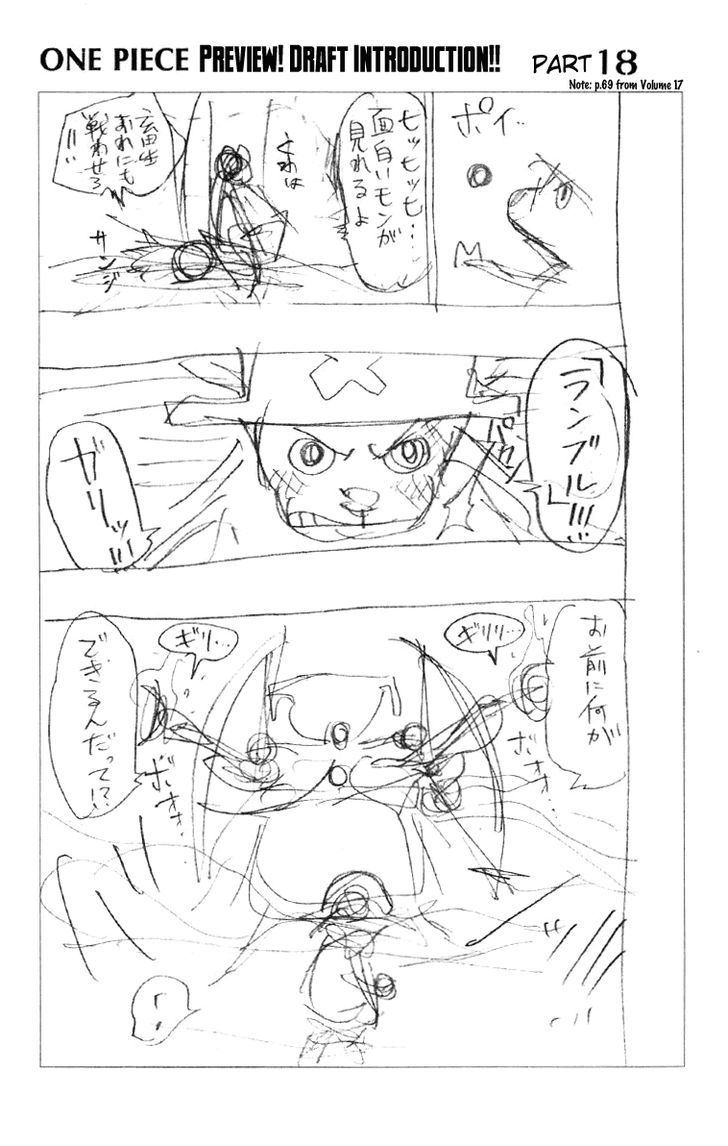 ONE PIECE PREVIEW! DRAFT INTRODUCTION!! PART 18
Note: p.69 from Volume 17
ポイ‥
ヒッヒッヒ…
面白いモンが
見れるよ
くれは
おれにも
戦わせろ
!!
サンジ
「ランブル!!!」
パクッ
ガリッ!!
お前に何が
ギリリ…
ボオオ‥
ギリ…
ボオオ‥
できるんだって!?